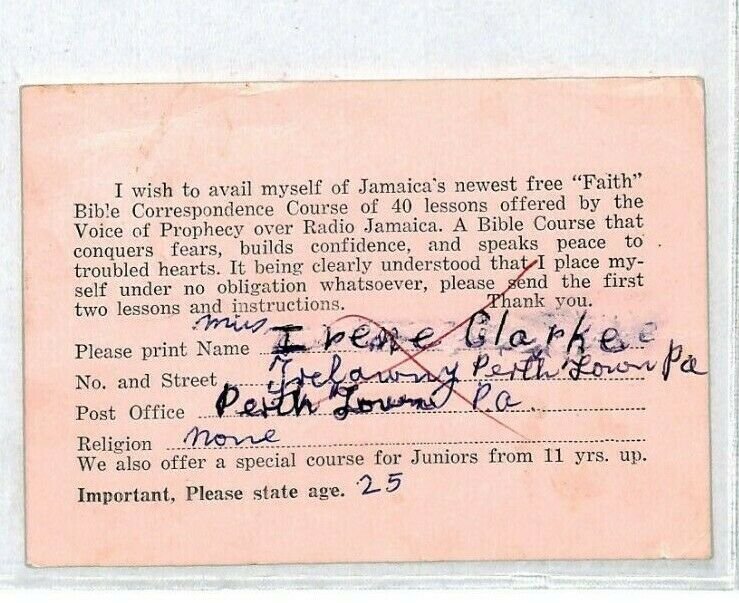 I wish to avail myself of Jamaica's newest free "Faith"
Bible Correspondence Course of 40 lessons offered by the
Voice of Prophecy over Radio Jamaica. A Bible Course that
conquers fears, builds confidence, and speaks peace to
troubled hearts. It being clearly understood that I place my-
self under no obligation whatsoever, please send the first
two lessons and instructions. Thank you.
Miss
Please print Name Irene Clarke
No. and Street Trelawny Perth Town Pa
Post Office Perth Town P.a
Religion none
We also offer a special course for Juniors from 11 yrs. up.
Important, Please state age. 25